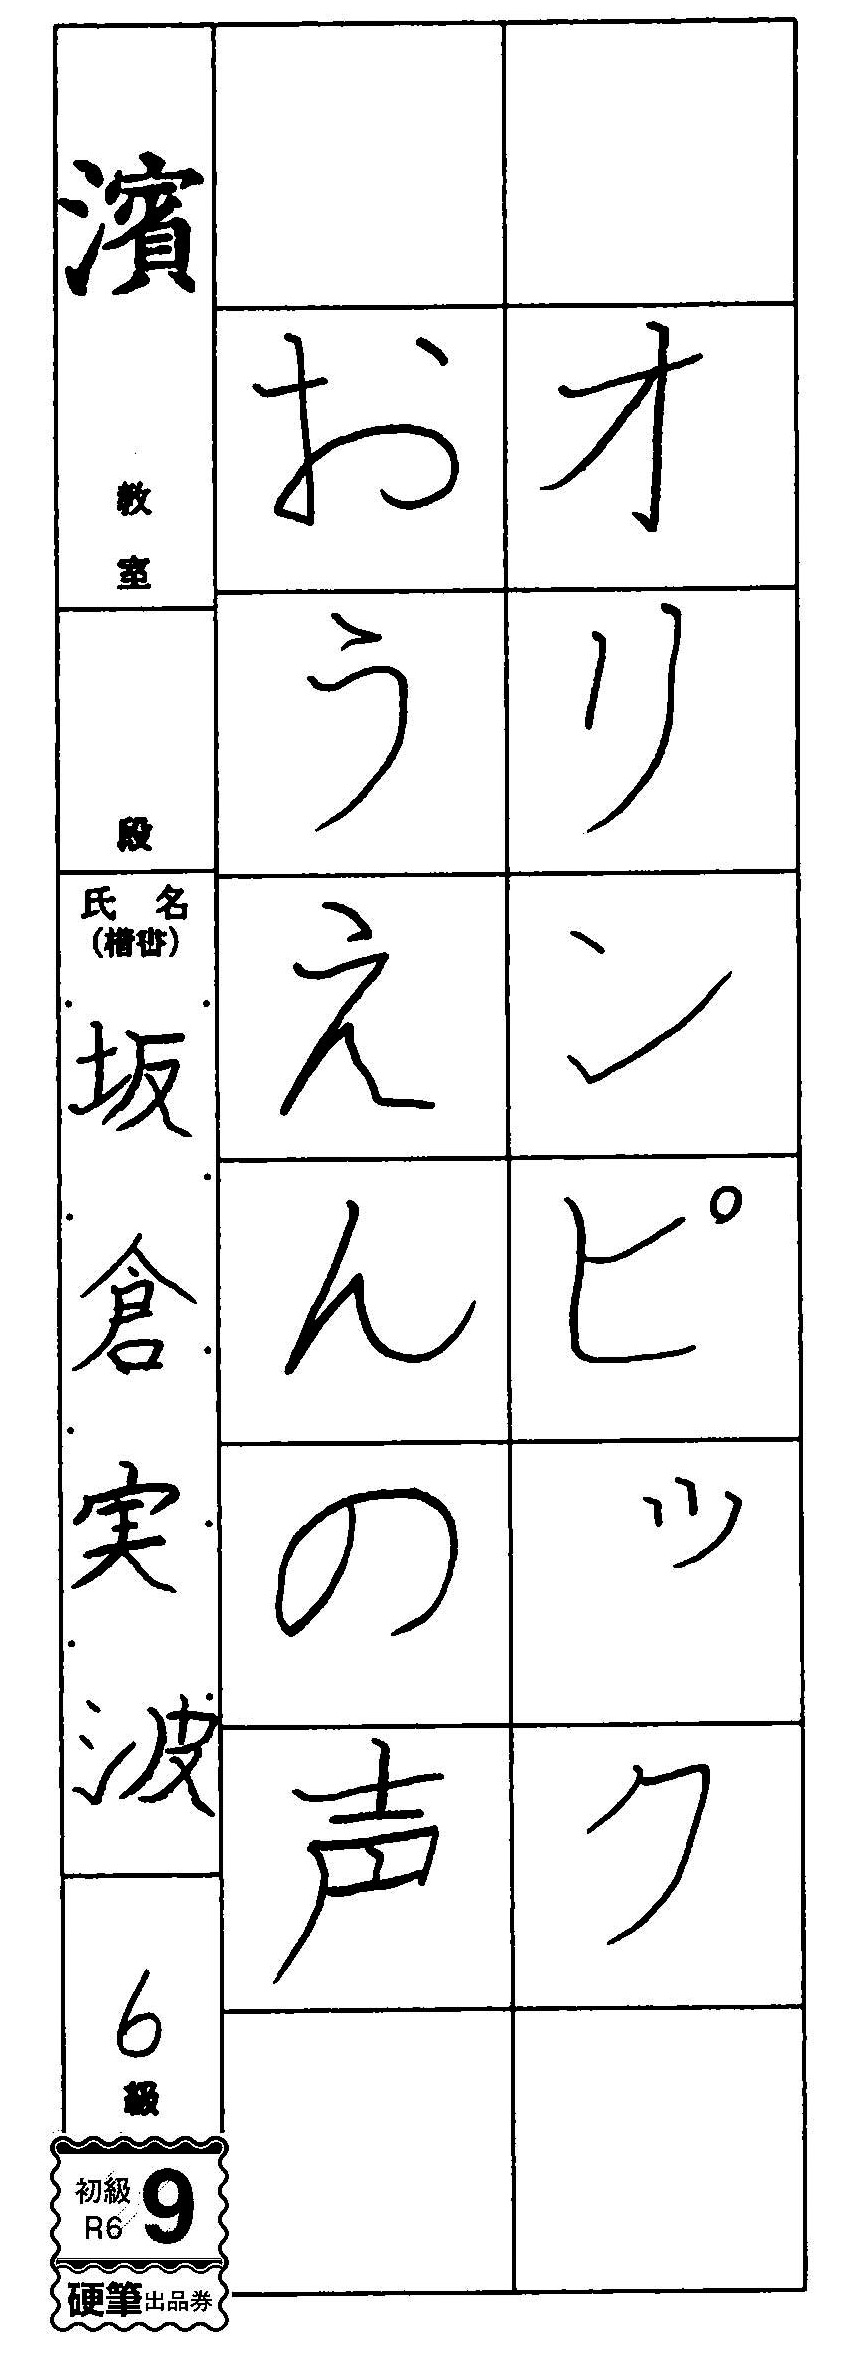 オリンピック
おうえんの声
濱教室
段
氏名
(楷書)
坂倉実波
6級
初級
R6
9
硬筆出品券